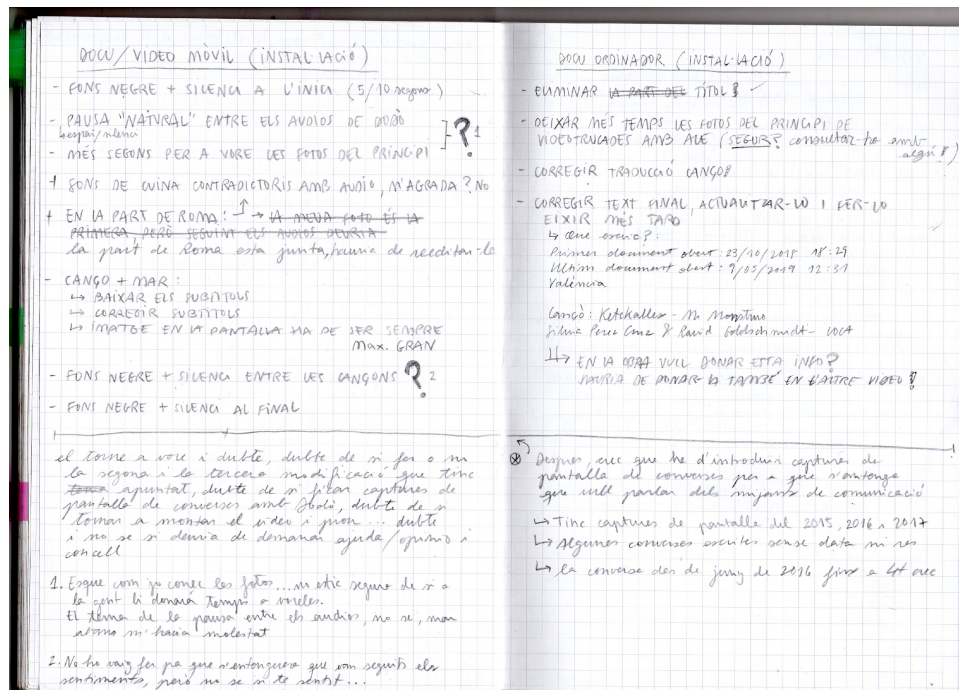 DOCU/VIDEO MÒVIL (INSTAL·LACIÓ)
- FONS NEGRE + SILENCI A L'INICI (5/10 segons)
- PAUSA "NATURAL" ENTRE ELS AUDIOS DE DODÒ
↳ espai/silenci
- MÉS SEGONS PER A VORE LES FOTOS DEL PRINCIPI
? 1
+ FONS DE CUINA CONTRADICTORIS AMB AUDIO, M'AGRADA? NO
+ EN LA PART DE ROMA: → LA MEUA FOTO ÉS LA
PRIMERA PERÒ SEGUINT ELS AUDIOS DEURIA
la part de Roma esta junta, hauria de reeditar-la
- CANÇO + MAR:
↳ BAIXAR ELS SUBTITOLS
↳ CORREGIR SUBTITOLS
↳ IMATGE EN LA PANTALLA HA DE SER SEMPRE
Max. GRAN
- FONS NEGRE + SILENCI ENTRE LES CANÇONS ? 2
- FONS NEGRE + SILENCI AL FINAL
el torne a vore i dubte, dubte de si fer o no
la segona i la tercera modificació que tinc
apuntat, dubte de si ficar captures de
pantalla de converses amb Dodò, dubte de si
tornar a montar el video i prou... dubte
i no se si deuria de demanar ajuda/opinió i
concell
1. Esque com jo conec les fotos... no estic segura de si a
la gent li donarà temps a voreles.
El tema de la pausa entre els audios, no se, mai
abans m'havia molestat
2. No ho vaig fer pa que s'entenguera que van seguits els
sentiments, però no se si te sentit...
DOCU ORDINADOR (INSTAL·LACIÓ)
- ELIMINAR LA PART DEL TÍTOL
- DEIXAR MÉS TEMPS LES FOTOS DEL PRINCIPI DE
VIDEOTRUCADES AMB ALE (SEGUR? consultar-ho amb
algú!)
- CORREGIR TRADUCCIÓ CANÇO
- CORREGIR TEXT FINAL, ACTUALITZAR-LO I FER-LO
EIXIR MÉS TARD
↳ Que escric?:
Primer document obert: 23/10/2015 18:29
Ultim document obert: 9/05/2019 12:31
València
Cançó: Ketekalles - Mi Monstruo
Silvia Perez Cruz & David Goldschmidt - LOCA
↳ EN LA OBRA VULL DONAR ESTA INFO?
HAURIA DE DONAR-LA TAMBÉ EN L'ALTRE VIDEO?
⊗ Despres, crec que he d'introduir captures de
pantalla de converses per a què s'entenga
que vull parlar dels mitjans de comunicació
↳ Tinc captures de pantalla del 2015, 2016 i 2017
↳ Algunes converses escrites sense data ni res
↳ la conversa des de juny de 2016 fins a crec